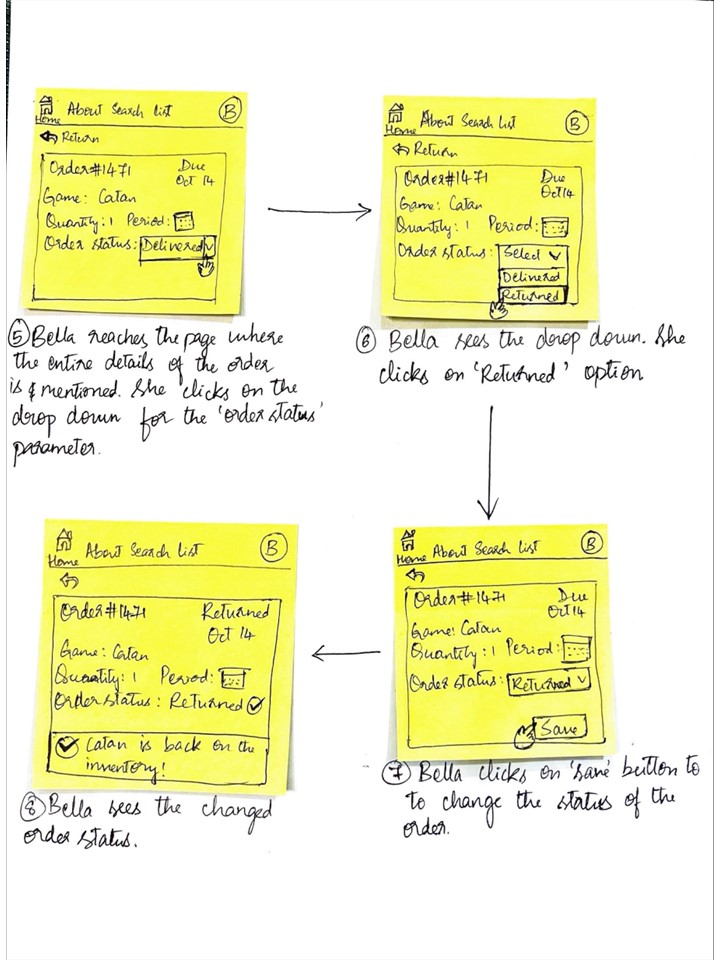 Home About Search List B
Return
Order#1471 Due
Oct 14
Game: Catan
Quantity: 1 Period:
Order status: Delivered
⑤ Bella reaches the page where
the entire details of the order
is mentioned. She clicks on the
drop down for the 'order status'
parameter.
Home About Search List B
Return
Order#1471 Due
Oct 14
Game: Catan
Quantity: 1 Period:
Order status: Select
Delivered
Returned
⑥ Bella sees the drop down. She
clicks on 'Returned' option
Home About Search List B
Order#1471 Due
Oct 14
Game: Catan
Quantity: 1 Period:
Order status: Returned
Save
⑦ Bella clicks on 'save' button to
to change the status of the
order.
Home About Search List B
Order#1471 Returned
Oct 14
Game: Catan
Quantity: 1 Period:
Order status: Returned
Catan is back on the
inventory!
⑧ Bella sees the changed
order status.